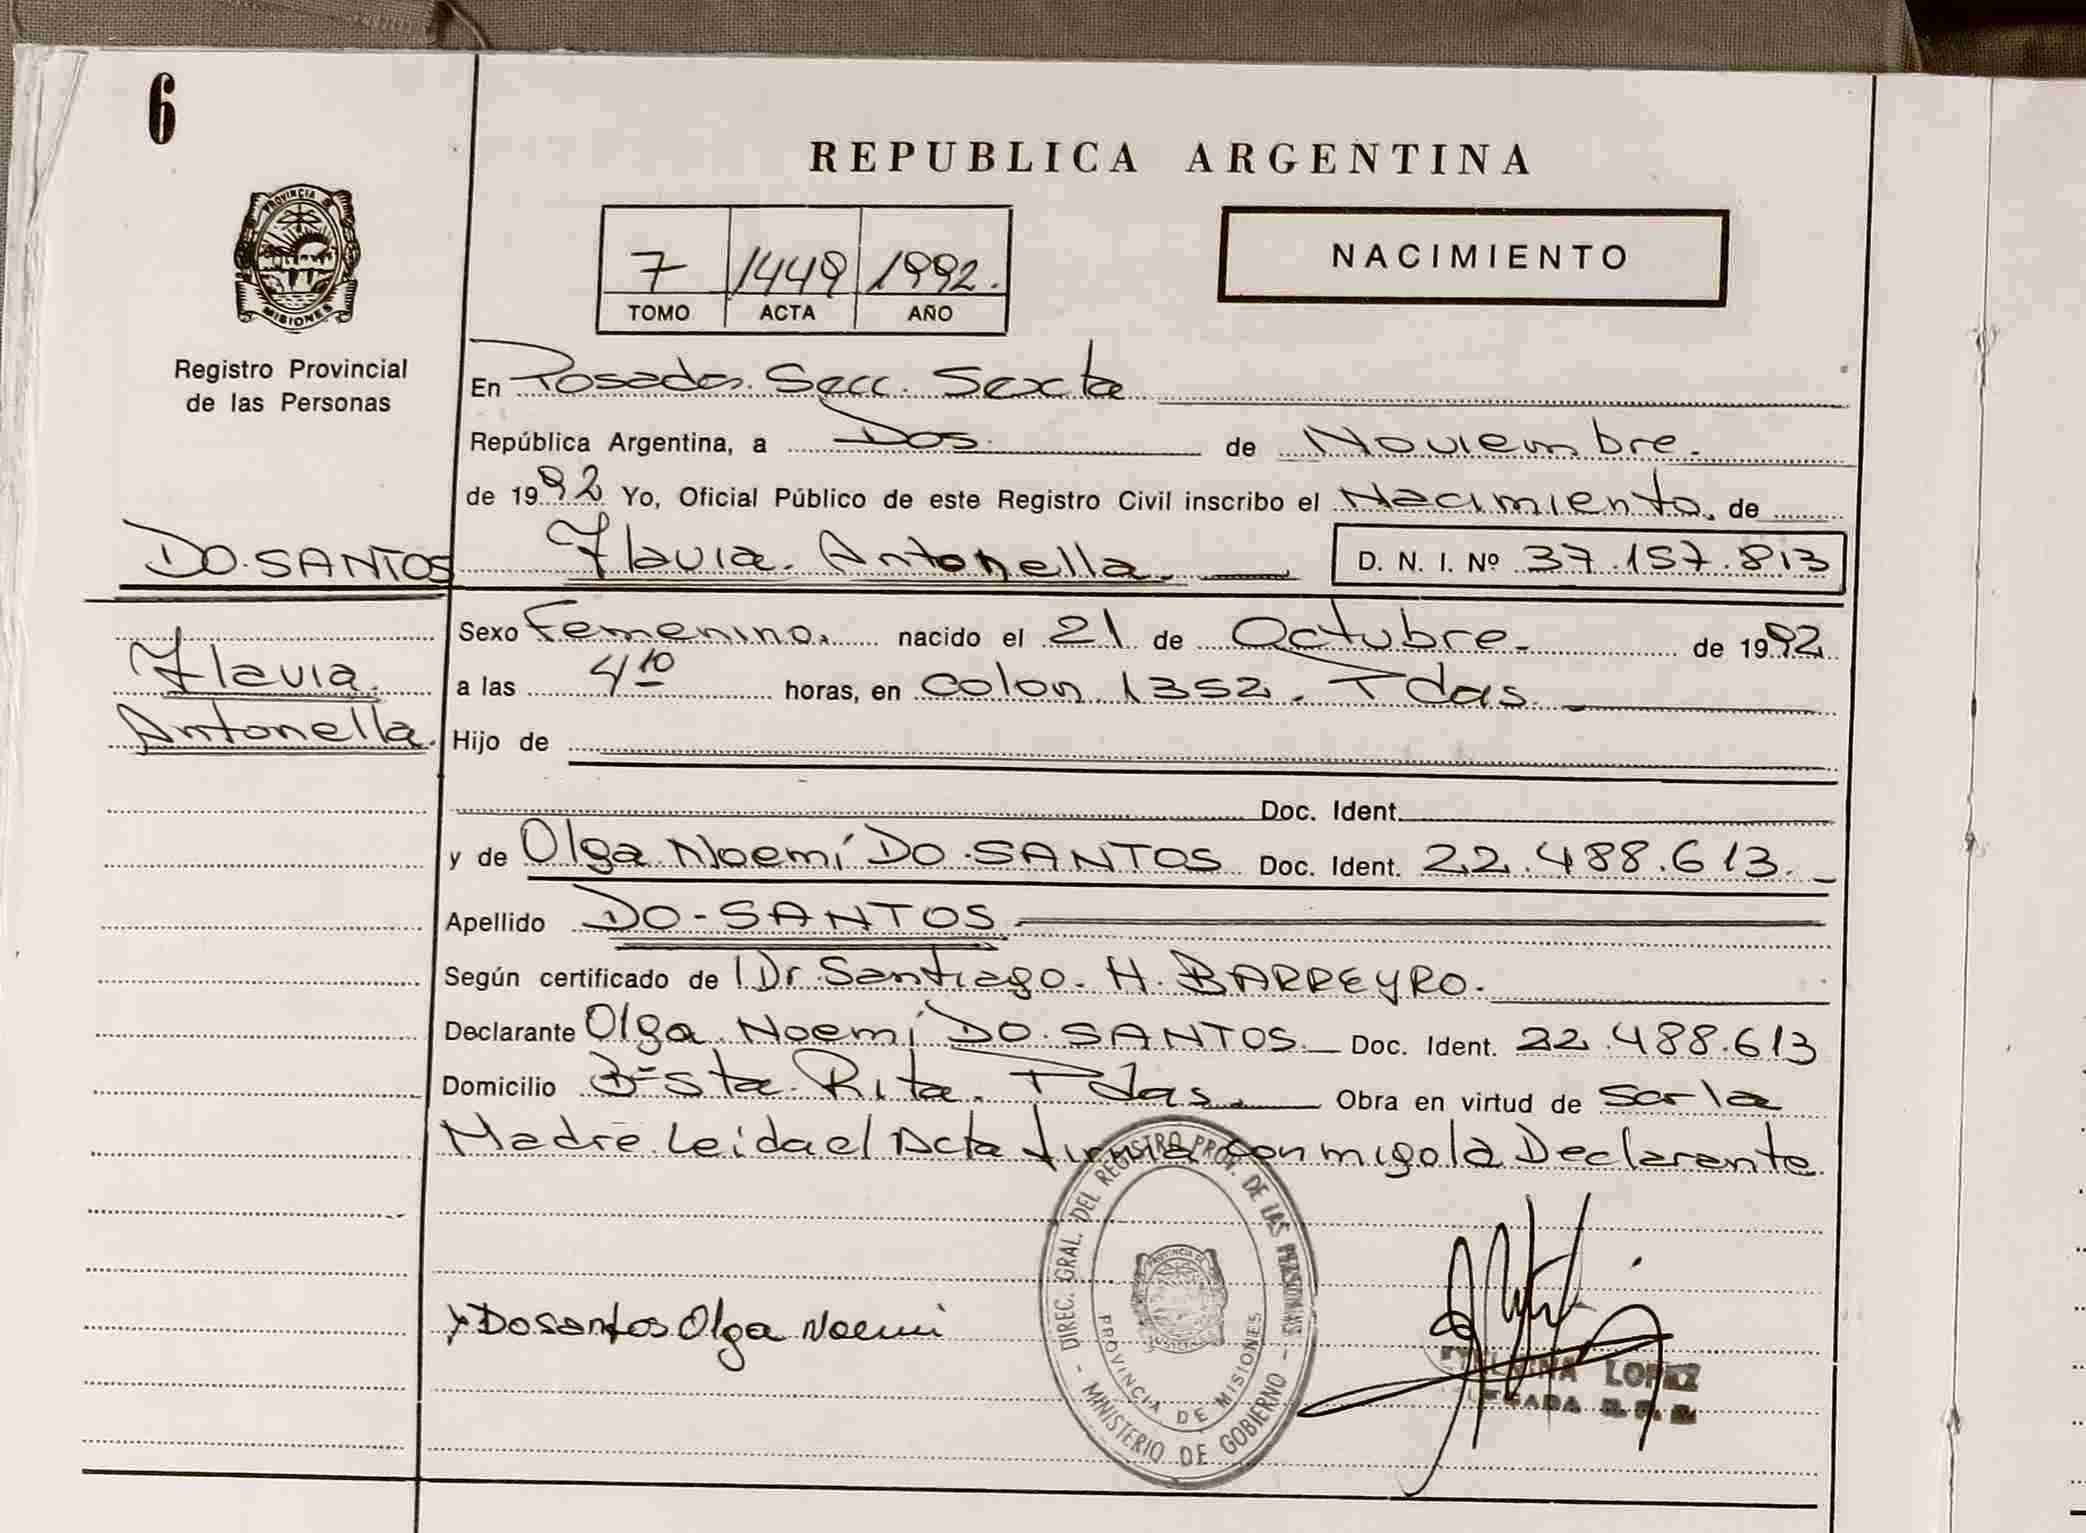 6
REPUBLICA ARGENTINA
PROVINCIA DE
MISIONES
Registro Provincial
de las Personas
7 1449 1992.
TOMO ACTA AÑO
NACIMIENTO
En Posadas. Secc. Sexta
República Argentina, a Dos. de Noviembre.
de 1992 Yo, Oficial Público de este Registro Civil inscribo el Nacimiento. de
DO.SANTOS Flavia. Antonella. D. N. I. Nº 37.157.813
Flavia.
Antonella.
Sexo Femenino. nacido el 21 de Octubre. de 1992
a las 4 10 horas, en Colon 1352. Pdas.
Hijo de
Doc. Ident.
y de Olga Noemí DO.SANTOS Doc. Ident. 22.488.613.
Apellido DO-SANTOS
Según certificado de Dr. Santiago. H. BARREYRO.
Declarante Olga Noemí DO.SANTOS. Doc. Ident. 22.488.613
Domicilio Bº Sta. Rita. Pdas. Obra en virtud de Ser la
Madre Leida el Acta firma conmigo la Declarante
DIREC. GRAL. DEL REGISTRO PROV. DE LAS PERSONAS
- MINISTERIO DE GOBIERNO -
PROVINCIA DE MISIONES
Do santos Olga Noemi
LOPEZ